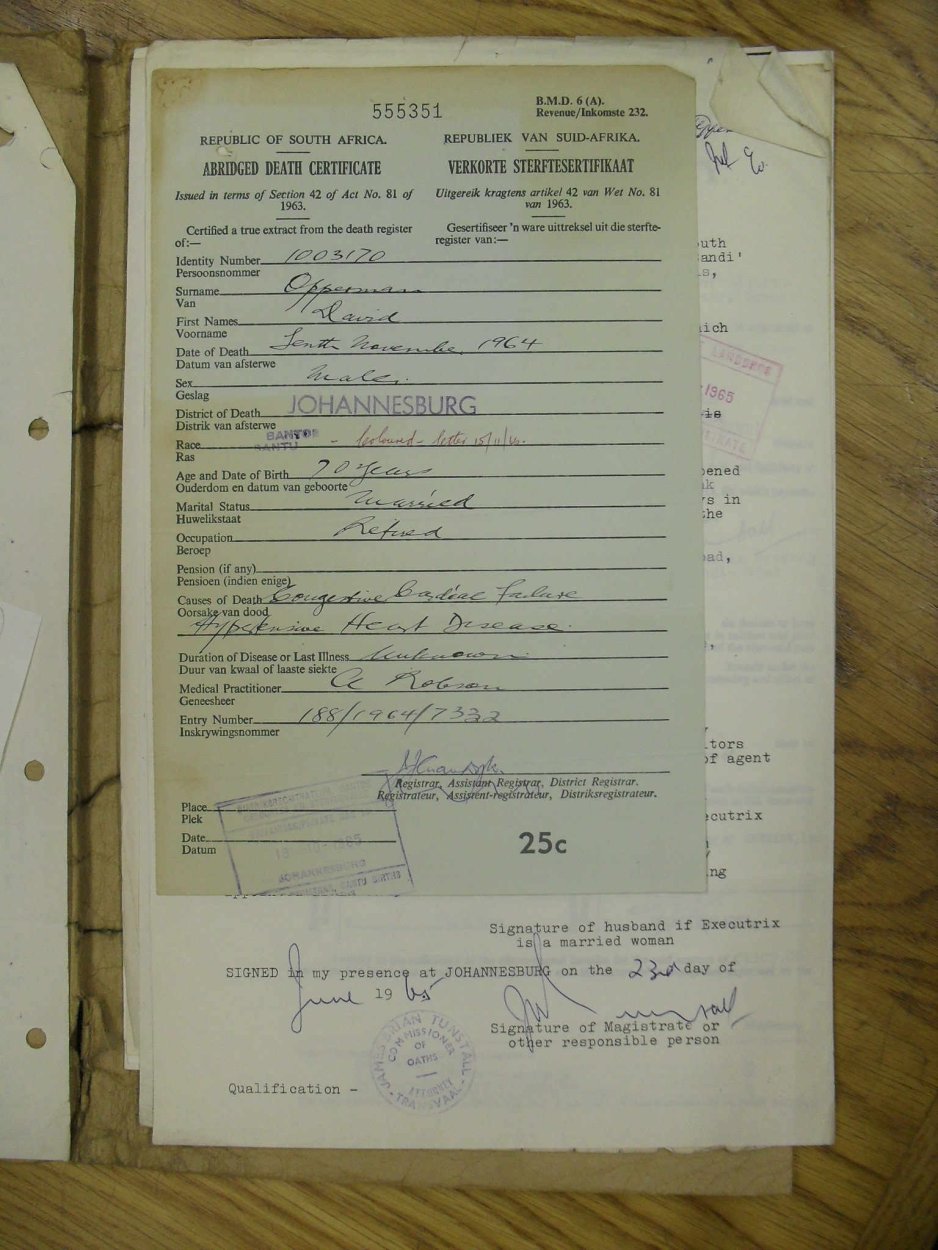 555351
B.M.D. 6 (A).
Revenue/Inkomste 232.
REPUBLIC OF SOUTH AFRICA.
ABRIDGED DEATH CERTIFICATE
Issued in terms of Section 42 of Act No. 81 of
1963.
Certified a true extract from the death register
of:—
REPUBLIEK VAN SUID-AFRIKA.
VERKORTE STERFTESERTIFIKAAT
Uitgereik kragtens artikel 42 van Wet No. 81
van 1963.
Gesertifiseer 'n ware uittreksel uit die sterfte-
register van:—
Identity Number 1003170
Persoonsnommer
Surname Opperman
Van
First Names David
Voorname
Date of Death Tenth November 1964
Datum van afsterwe
Sex Male.
Geslag
District of Death JOHANNESBURG
Distrik van afsterwe
Race BANTOE BANTU - Coloured - letter
Ras
Age and Date of Birth 70 years
Ouderdom en datum van geboorte
Marital Status Married
Huwelikstaat
Occupation Retired
Beroep
Pension (if any)
Pensioen (indien enige)
Causes of Death Congestive Cardiac Failure
Oorsake van dood
Hypertensive Heart Disease.
Duration of Disease or Last Illness Unknown
Duur van kwaal of laaste siekte
Medical Practitioner A Robson
Geneesheer
Entry Number 188/1964/7332
Inskrywingsnommer
Registrar, Assistant Registrar, District Registrar.
Registrateur, Assistent-registrateur, Distriksregistrateur.
Place
Plek
Date
Datum
JOHANNESBURG
BANTU BIRTHS
25c
uth
andi'
s,
ich
LANDDROS
1965
is
ened
k
s in
the
ad,
tors
of agent
ecutrix
ng
Signature of husband if Executrix
is a married woman
SIGNED in my presence at JOHANNESBURG on the 23rd day of
June 1965
Signature of Magistrate or
other responsible person
JAMES BRIAN TUNSTALL
COMMISSIONER
OF
OATHS
ATTORNEY
TRANSVAAL
Qualification -